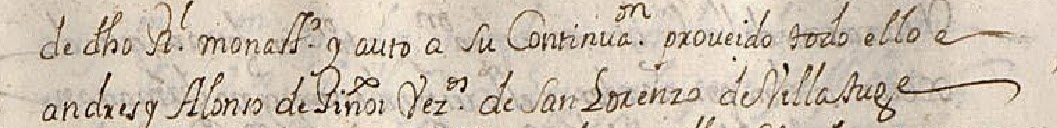 de dho Rl. monastº. y auto a su Continuaon. proueido todo ello a
andres y Alonso de Piñor Vezos. de San Lorenzo de